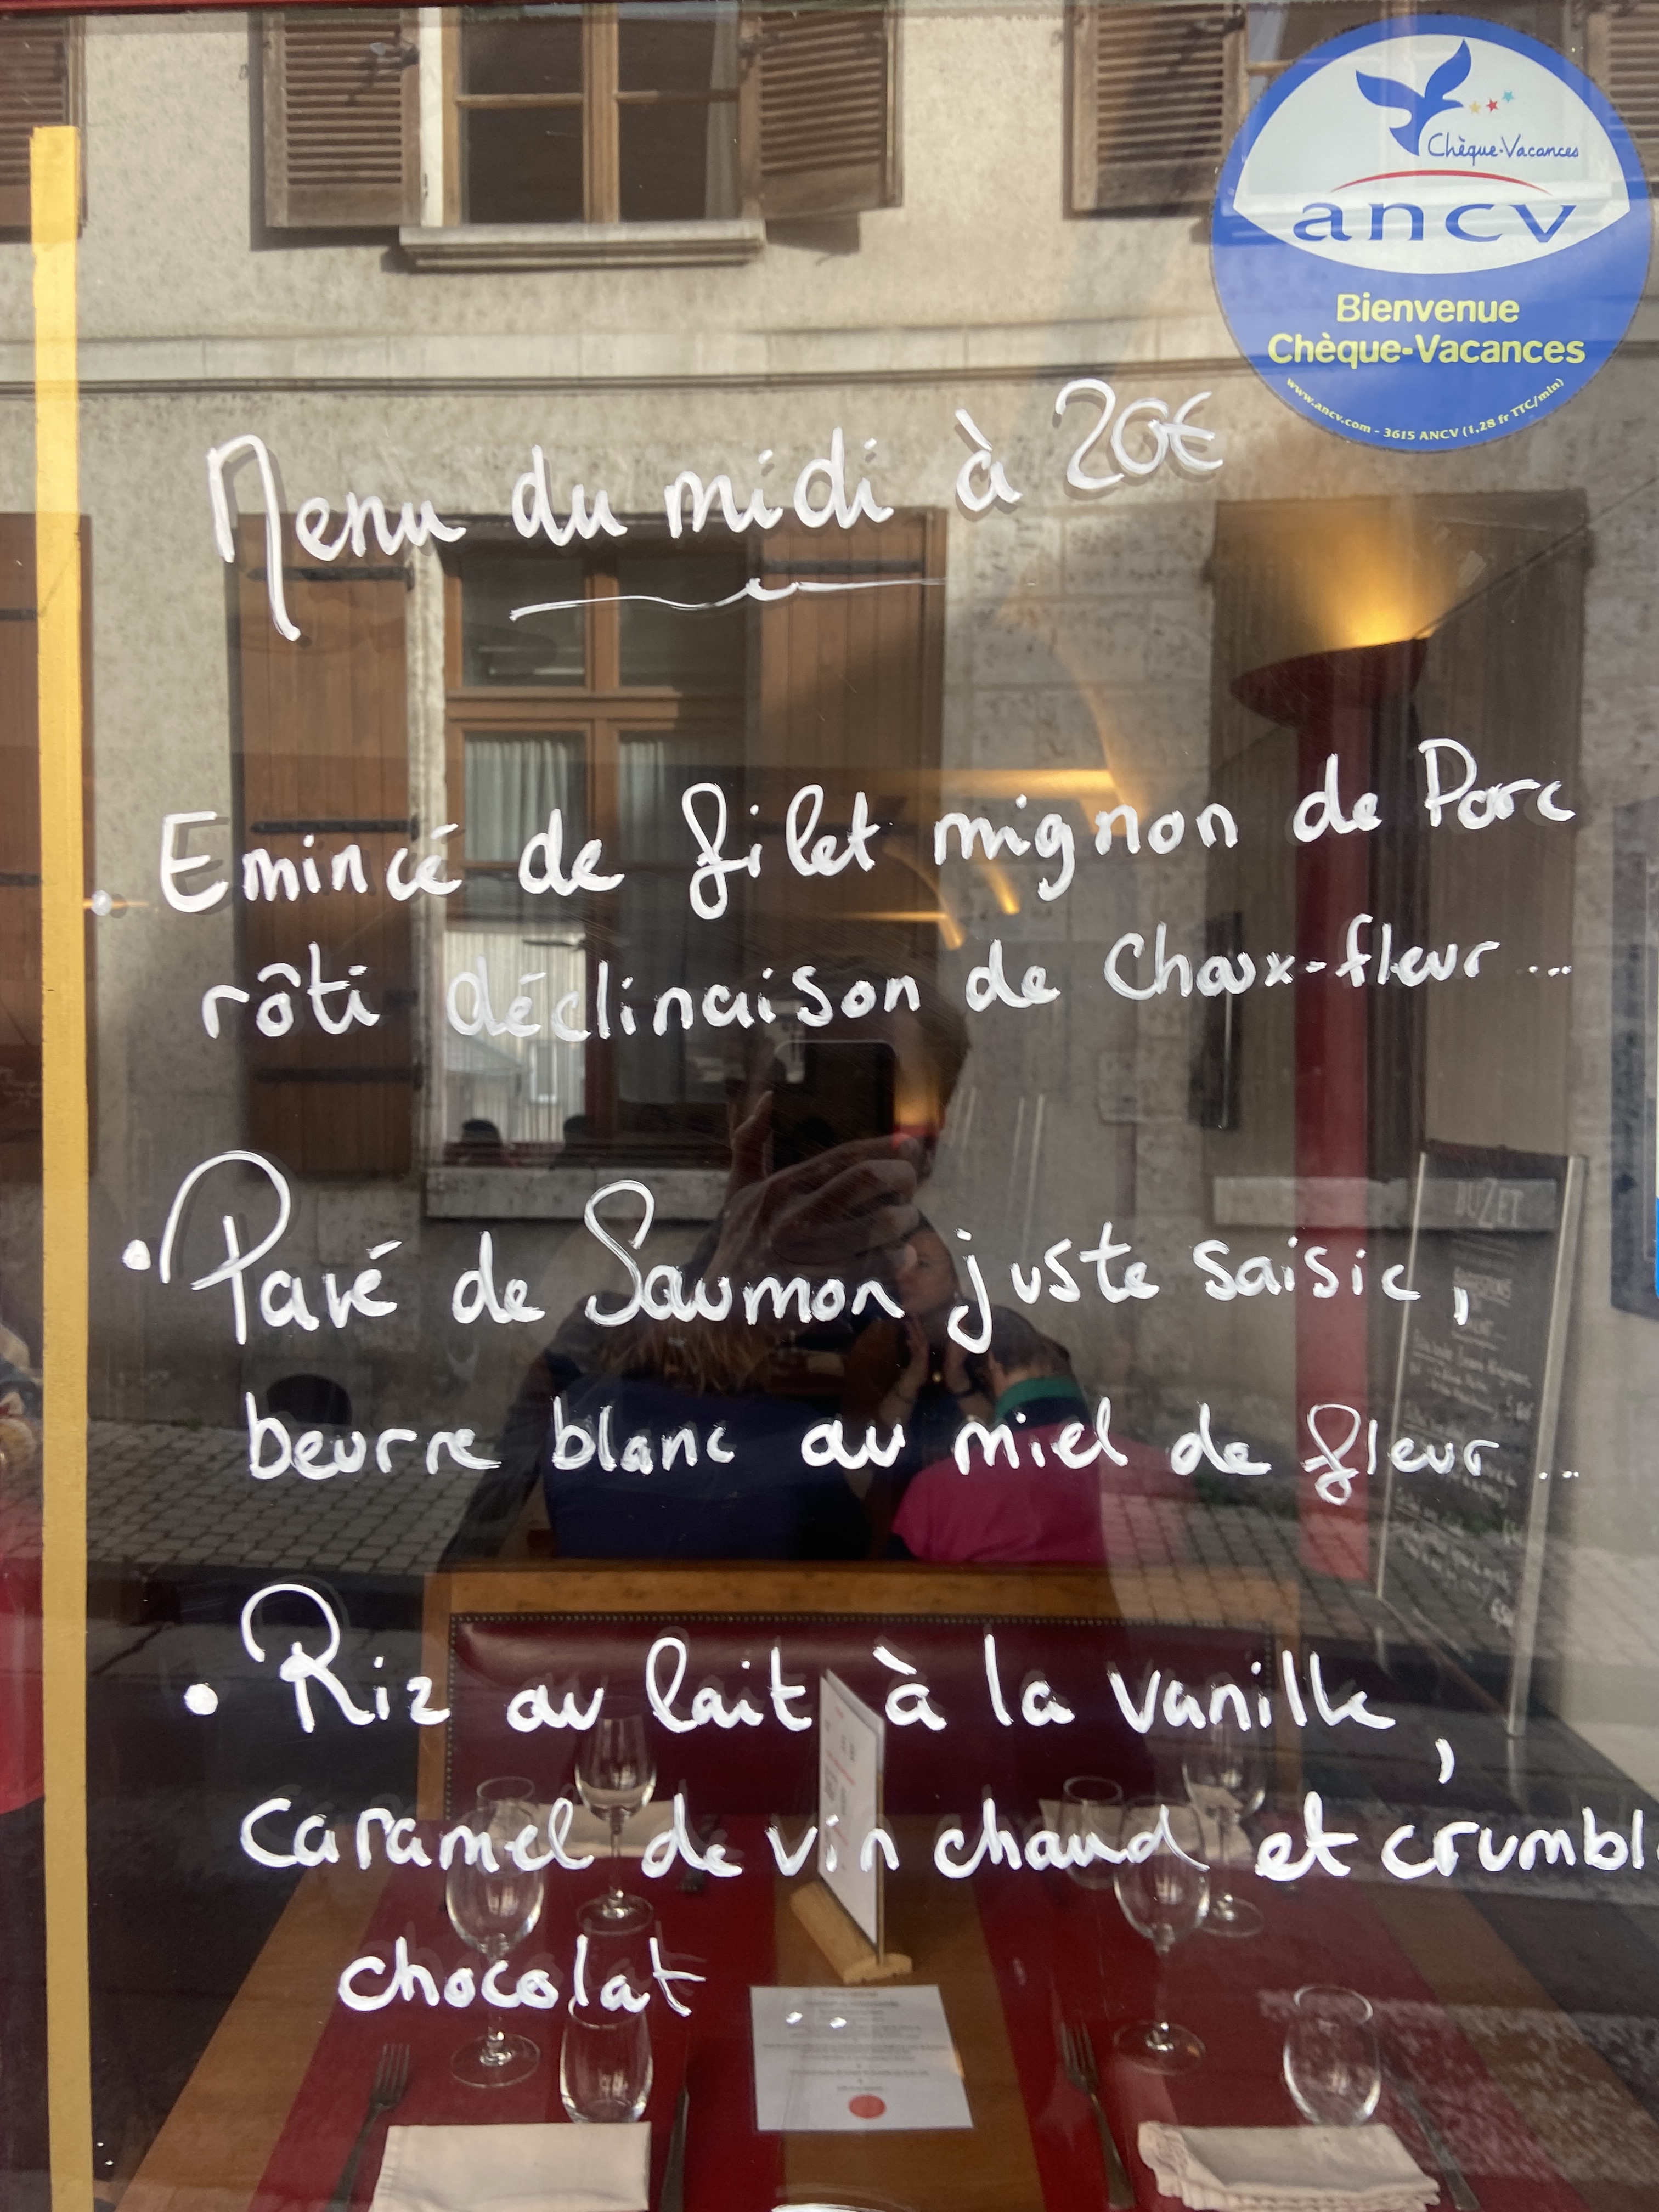 Chèque-Vacances
ancv
Bienvenue
Chèque-Vacances
www.ancv.com - 3615 ANCV (1,28 fr TTC/min)
Menu du midi à 20€
. Emincé de filet mignon de Porc
rôti déclinaison de Choux-fleur ...
• Pavé de Saumon juste saisie,
beurre blanc au miel de fleur ...
• Riz au lait à la vanille,
Caramel de vin chaud et crumbl
chocolat ...
BUZET